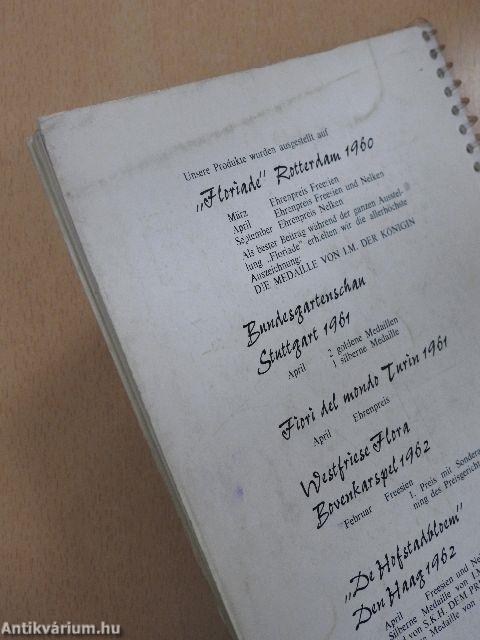 Unsere Produkte wurden ausgestellt auf
„Floriade” Rotterdam 1960
März Ehrenpreis Freesien
April Ehrenpreis Freesien und Nelken
September Ehrenpreis Nelken
Als bester Beitrag während der ganzen Ausstel-
lung „Floriade” erhielten wir die allerhöchste
Auszeichnung:
DIE MEDAILLE VON I.M. DER KÖNIGIN
Bundesgartenschau
Stuttgart 1961
April 2 goldene Medaillen
1 silberne Medaille
Fiori del mondo Turin 1961
April Ehrenpreis
Westfriese Flora
Bovenkarspel 1962
Februar Freesien 1. Preis mit Sondera
ning des Preisgericht
„De Hofstadbloem”
Den Haag 1962
April Freesien und Nel
Silberne Medaille von I.M
von S.K.H. DEM PR
Medaille von
Antikvárium.hu